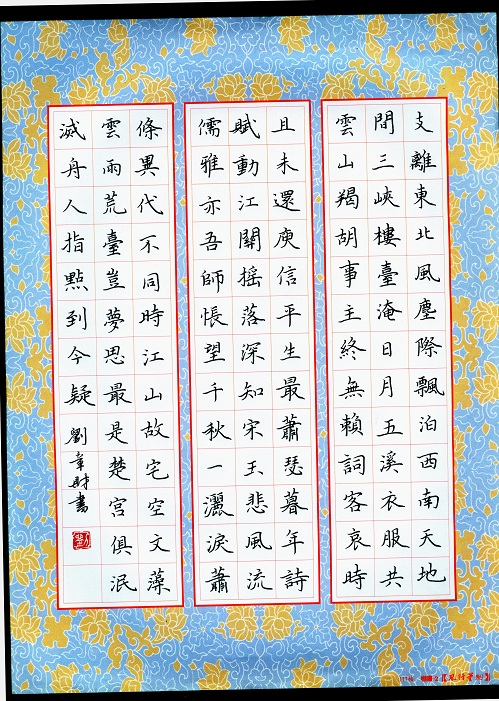 支離東北風塵際飄泊西南天地
間三峽樓臺淹日月五溪衣服共
雲山羯胡事主終無賴詞客哀時
且未還庾信平生最蕭瑟暮年詩
賦動江關搖落深知宋玉悲風流
儒雅亦吾師悵望千秋一灑淚蕭
條異代不同時江山故宅空文藻
雲雨荒臺豈夢思最是楚宮俱泯
滅舟人指點到今疑
劉財書